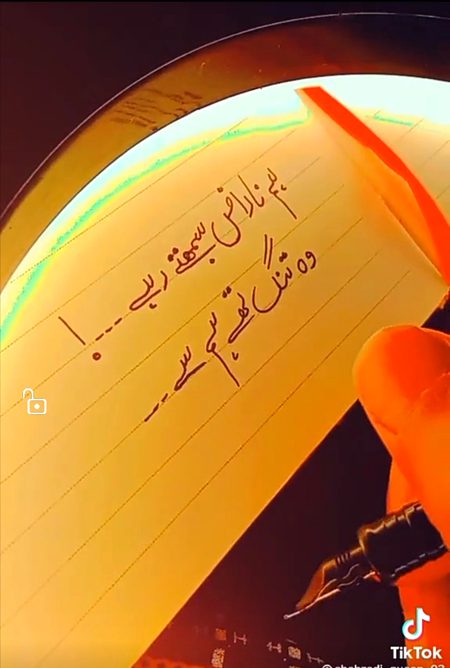 ہم ناراض سمجھتے رہے ---!
وہ تنگ تھے ہم سے ---
TikTok